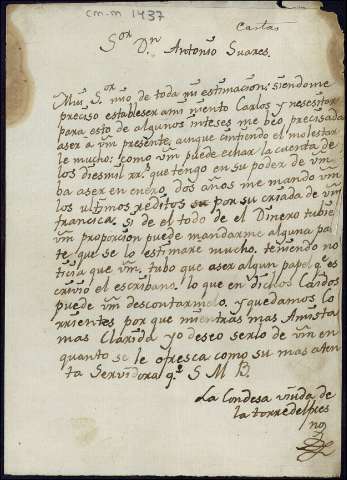 cm-m 1437
Cartas
Sor Dn Antonio Suares.
Muy Sor mio de toda mi estimacion: siendome
preciso estableser ami niento Carlos y nesesitar
para esto de algunos inteses me beo precisada
aser a Vm presente, aunque cintiendo el molestar
le mucho: como Vm puede echar la cuenta de
los diesmil rr. que tengo en su poder de Vm
ba aser en enero, dos años me mando Vm
los ultimos reditos por su criada de Vm
francica. si de el todo de el Dinero tubie
Vm proporcion puede mandarme alguna pa
te que se lo estimare mucho. teniendo no
ticia que Vm. tubo que aser algun papel q es
crivio el escribano. lo que en dichos Caidos
puede Vm descontarmelo, y quedamos co
rrientes por que mientras mas Amista
mas Clarida yo deseo serlo de Vm en
quanto se le ofresca como su mas aten
ta Servidora q. S M B.
La Condesa viuda de
la torre del